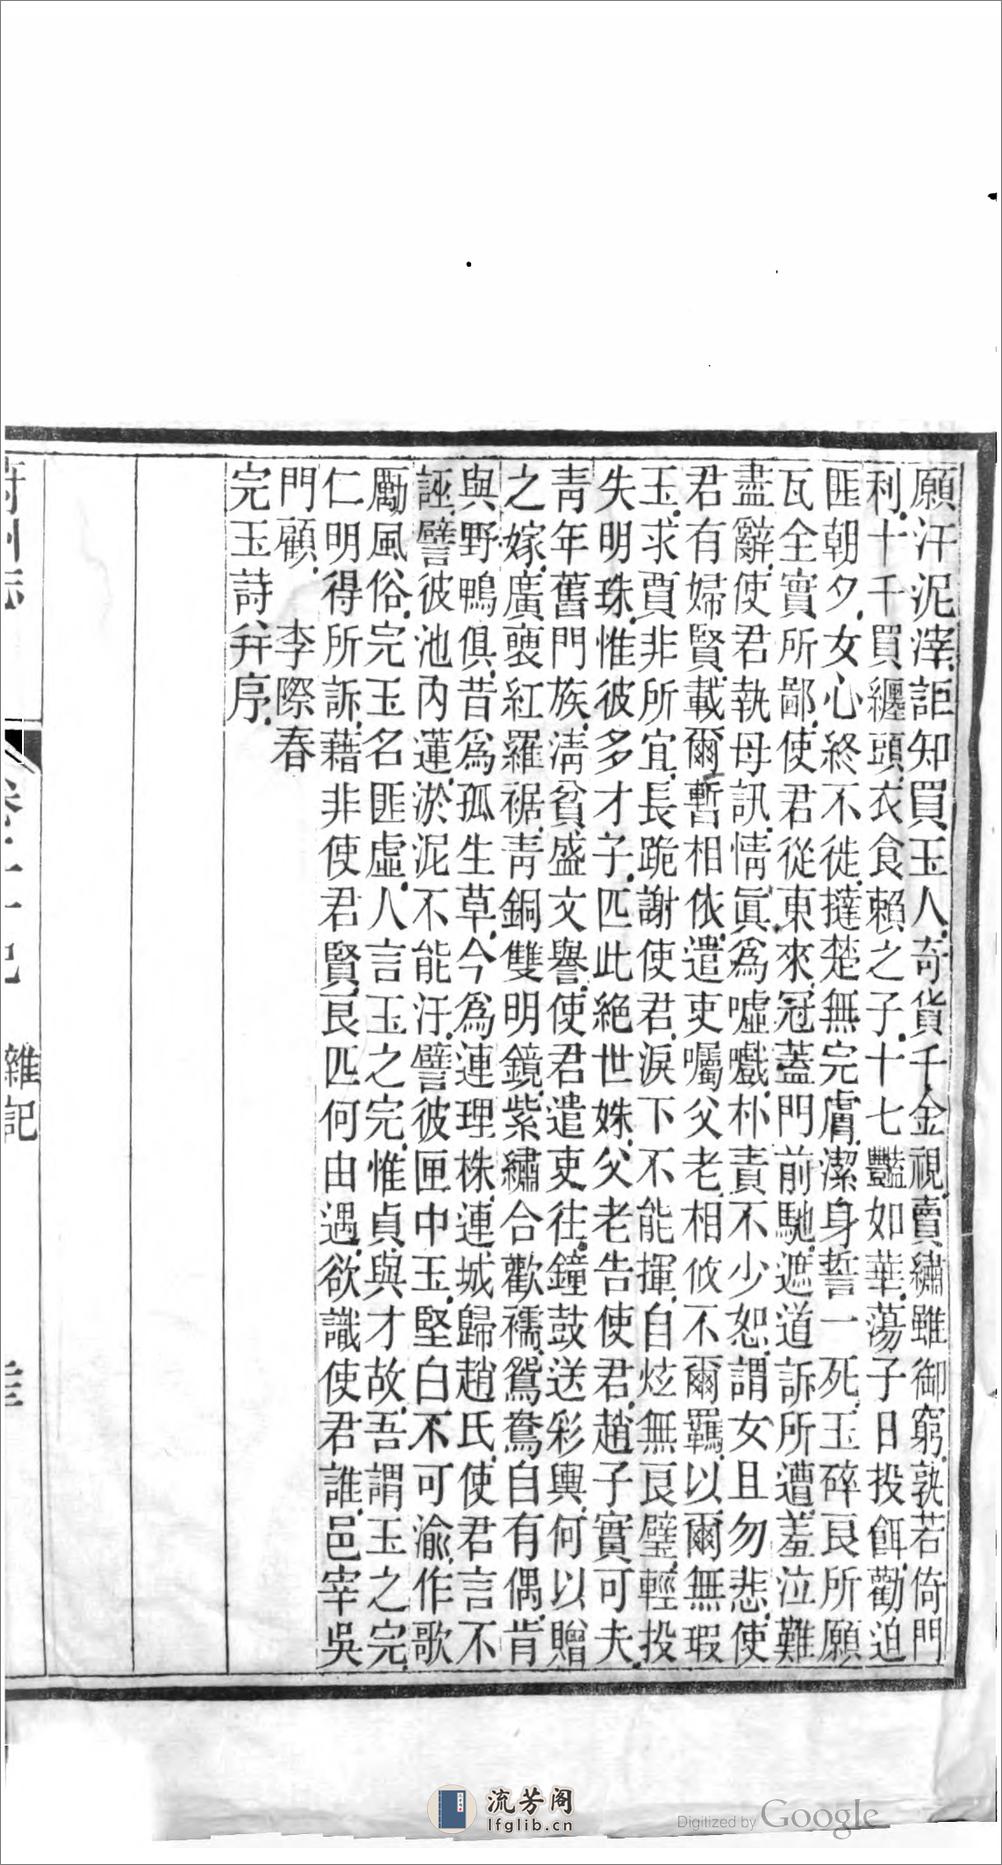 願汗泥滓詎知買玉人奇貨千金視賣繡雖御窮孰若倚門
利十千買纏頭衣食賴之子十七豔如華蕩子日投餌勸迫
匪朝夕女心終不徙撻楚無完膚潔身誓一死玉碎良所願
瓦全實所鄙使君從東來冠蓋門前馳遮道訴所遭羞泣難
盡辭使君執母訊情眞爲噓戲朴責不少恕謂女且勿悲使
君有婦賢載爾暫相依遣吏囑父老相攸不爾羈以爾無瑕
玉求賈非所宜長跪謝使君淚下不能揮自炫無良璧輕投
失明珠惟彼多才子匹此絕世姝父老告使君趙子實可夫
靑年舊門族淸貧盛文譽使君遣吏往鐘鼓送彩輿何以贈
之嫁廣袤紅羅裾靑銅雙明鏡紫繡合歡襦鴛鴦自有偶肯
與野鴨俱昔爲孤生草今爲連理株連城歸趙氏使君言不
誣譬彼池內蓮淤泥不能汙譬彼匣中玉堅白不可渝作歌
勵風俗完玉名匪虛人言玉之完惟貞與才故吾謂玉之完
仁明得所訴藉非使君賢良匹何由遇欲識使君誰邑宰吳
門顧 李際春
完玉詩并序
雜記
流芳阁
lfglib.cn
Digitized by Google